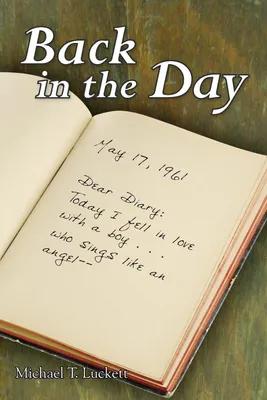 Back
in the Day
May 17, 1961
Dear Diary:
Today I fell in love
with a boy . . .
who sings like an
angel--
Michael T. Luckett